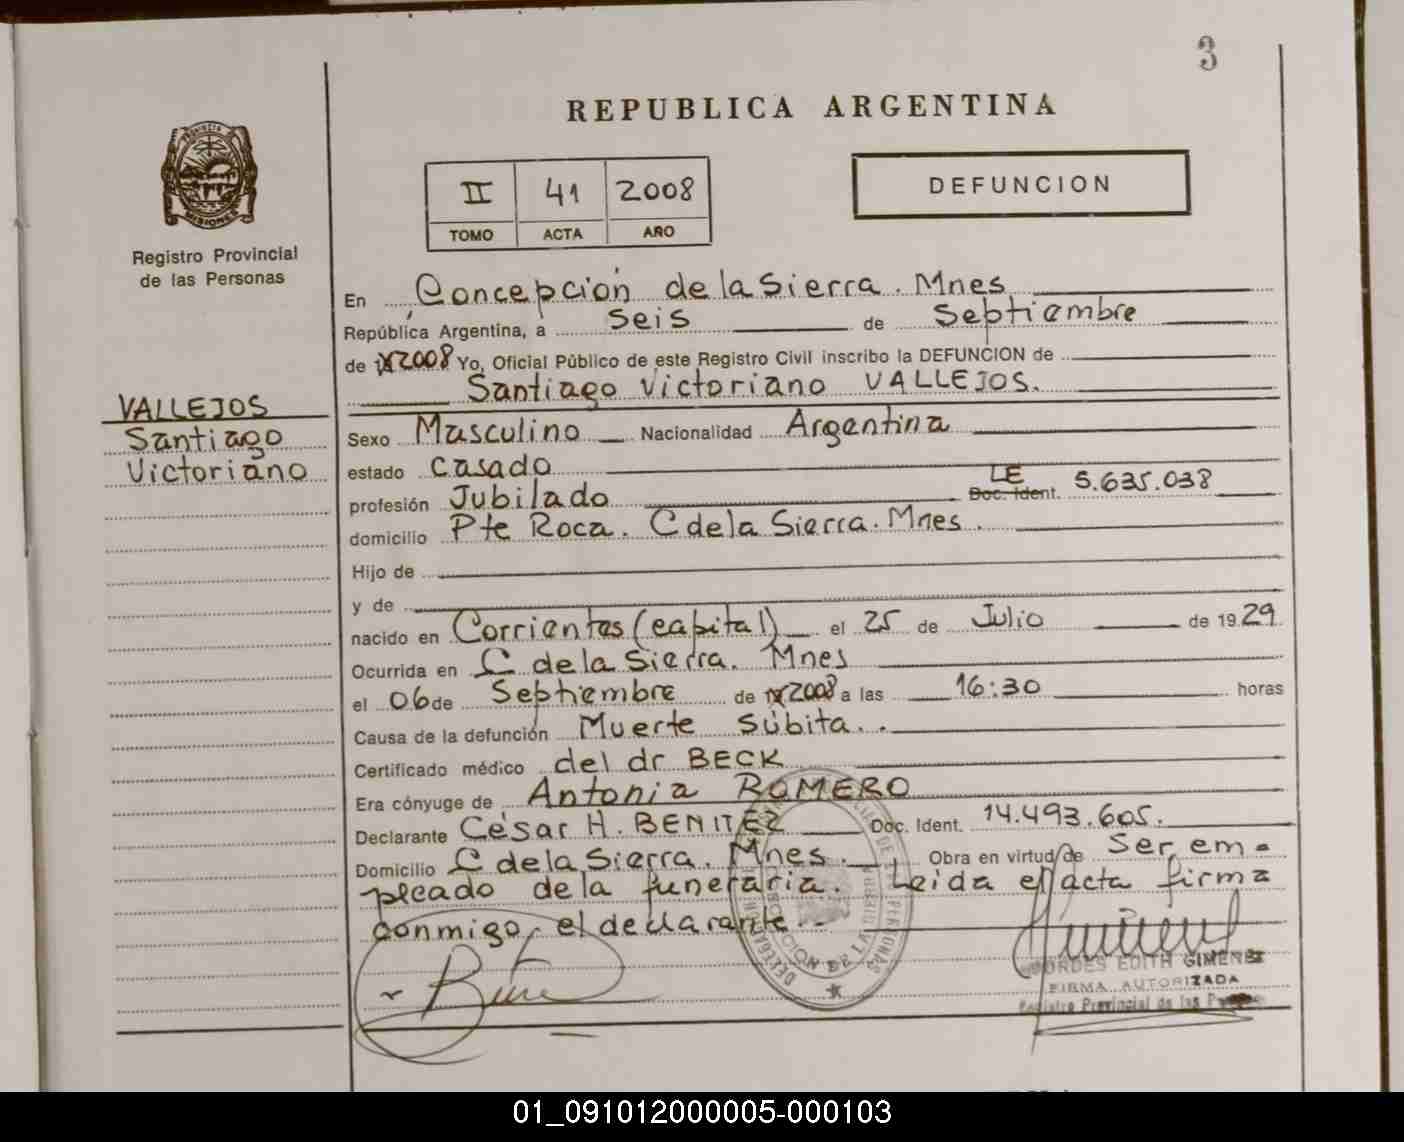 3
REPUBLICA ARGENTINA
II 41 2008
TOMO ACTA AÑO
DEFUNCION
PROVINCIA
MISIONES
Registro Provincial
de las Personas
VALLEJOS
Santiago
Victoriano
En Concepción de la Sierra. Mnes
República Argentina, a seis de Septiembre
de 2008 Yo, Oficial Público de este Registro Civil inscribo la DEFUNCION de
Santiago Victoriano VALLEJOS.
Sexo Masculino Nacionalidad Argentina
estado Casado
profesión Jubilado LE Doc. Ident. 5.635.038
domicilio Pte Roca. C de la Sierra. Mnes.
Hijo de
y de
nacido en Corrientes (capital) el 25 de Julio de 1929
Ocurrida en C de la Sierra. Mnes
el 06 de Septiembre de 2008 a las 16:30 horas
Causa de la defunción Muerte Súbita..
Certificado médico del dr BECK
Era cónyuge de Antonia ROMERO
Declarante César H. BENITEZ Doc. Ident. 14.493.605.
Domicilio C de la Sierra. Mnes. Obra en virtud de Ser em-
pleado de la funeraria. Leida el acta firma
conmigo, el declarante.-
EDITH GIMENEZ
FIRMA AUTORIZADA
Registro Provincial de las
01_091012000005-000103